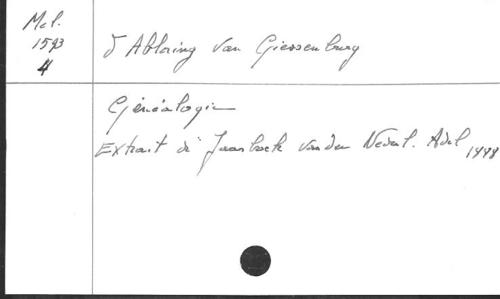 Mel.
1593
4
d'Ablaing van Giessenburg
Généalogie
Extrait du Jaarboek van den Nederl. Adel 1888